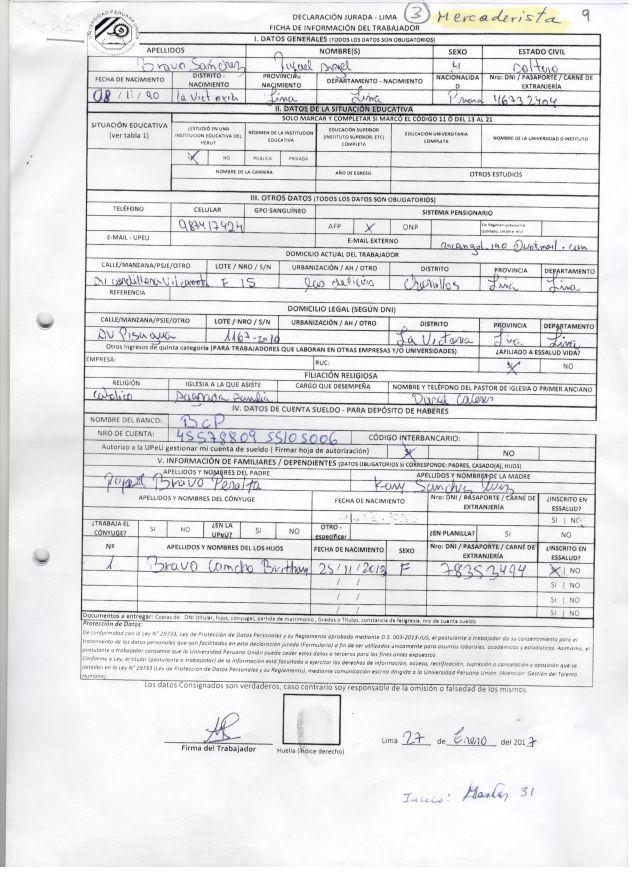 DECLARACIÓN JURADA - LIMA
③ Mercaderista 9
FICHA DE INFORMACIÓN DEL TRABAJADOR
I. DATOS GENERALES (TODOS LOS DATOS SON OBLIGATORIOS)
APELLIDOS NOMBRE(S) SEXO ESTADO CIVIL
Bravo Sanchez Rafael Angel M Soltero
FECHA DE NACIMIENTO DISTRITO - NACIMIENTO PROVINCIA NACIMIENTO DEPARTAMENTO - NACIMIENTO NACIONALIDAD Nro: DNI / PASAPORTE / CARNÉ DE EXTRANJERÍA
08/11/90 la Victoria Lima Lima Peruana 46732404
II. DATOS DE LA SITUACIÓN EDUCATIVA
SOLO MARCAR Y COMPLETAR SI MARCÓ EL CÓDIGO 11 Ó DEL 13 AL 21
SITUACIÓN EDUCATIVA (ver tabla 1) ¿ESTUDIÓ EN UNA INSTITUCION EDUCATIVA DEL PERU? RÉGIMEN DE LA INSTITUCION EDUCATIVA EDUCACIÓN SUPERIOR (INSTITUTO SUPERIOR, ETC) COMPLETA EDUCACIÓN UNIVERSITARIA COMPLETA NOMBRE DE LA UNIVERSIDAD O INSTITUTO
X NO PUBLICA PRIVADA
NOMBRE DE LA CARRERA AÑO DE EGRESO OTROS ESTUDIOS
III. OTROS DATOS (TODOS LOS DATOS SON OBLIGATORIOS)
TELÉFONO CELULAR GPO SANGUÍNEO SISTEMA PENSIONARIO
987417424 AFP X ONP
E-MAIL - UPEU E-MAIL EXTERNO
DOMICILIO ACTUAL DEL TRABAJADOR
CALLE/MANZANA/PSJE/OTRO LOTE / NRO / S/N URBANIZACIÓN / AH / OTRO DISTRITO PROVINCIA DEPARTAMENTO
F 15 las delicias Chorrillos Lima Lima
REFERENCIA
DOMICILIO LEGAL (SEGÚN DNI)
CALLE/MANZANA/PSJE/OTRO LOTE / NRO / S/N URBANIZACIÓN / AH / OTRO DISTRITO PROVINCIA DEPARTAMENTO
AV Pisagua La Victoria Lima Lima
Otros Ingresos de quinta categoría (PARA TRABAJADORES QUE LABORAN EN OTRAS EMPRESAS Y/O UNIVERSIDADES) ¿AFILIADO A ESSALUD VIDA?
EMPRESA: RUC: X NO
FILIACIÓN RELIGIOSA
RELIGIÓN IGLESIA A LA QUE ASISTE CARGO QUE DESEMPEÑA NOMBRE Y TELÉFONO DEL PASTOR DE IGLESIA O PRIMER ANCIANO
Catolico Sagrada Familia David Caceres
IV. DATOS DE CUENTA SUELDO - PARA DEPÓSITO DE HABERES
NOMBRE DEL BANCO: BCP
NRO DE CUENTA: 45578809 55105006 CÓDIGO INTERBANCARIO:
Autorizo a la UPeU gestionar mi cuenta de sueldo ( Firmar hoja de autorización) X NO
V. INFORMACIÓN DE FAMILIARES / DEPENDIENTES (DATOS OBLIGATORIOS SI CORRESPONDE: PADRES, CASADO(A), HIJOS)
APELLIDOS Y NOMBRES DEL PADRE APELLIDOS Y NOMBRES DE LA MADRE
Bravo Peralta Sanchez
APELLIDOS Y NOMBRES DEL CÓNYUGE FECHA DE NACIMIENTO Nro: DNI / PASAPORTE / CARNÉ DE EXTRANJERÍA ¿INSCRITO EN ESSALUD?
SI NO
¿TRABAJA EL CÓNYUGE? SI NO ¿EN LA UPeU? SI NO OTRO - especificar ¿EN PLANILLA? SI NO
Nº APELLIDOS Y NOMBRES DE LOS HIJOS FECHA DE NACIMIENTO SEXO Nro: DNI / PASAPORTE / CARNÉ DE EXTRANJERÍA ¿INSCRITO EN ESSALUD?
1 Bravo Camcho 25/11/2013 F 78353494 X NO
/ / SI NO
/ / SI NO
/ / SI NO
Documentos a entregar: Copias de: DNI (titular, hijos, cónyuge), partida de matrimonio, Grados o Títulos, constancia de feligresia, nro de cuenta sueldo
Protección de Datos:
De conformidad con la Ley N° 29733, Ley de Protección de Datos Personales y su Reglamento aprobado mediante D.S. 003-2013-JUS, el postulante o trabajador da su consentimiento para el
tratamiento de los datos personales que son facilitados en esta declaración jurada (Formulario) a fin de ser utilizados unicamente para asuntos laborales, académicos y estadísticos. Asimismo, el
postulante o trabajador consente que la Universidad Peruana Unión pueda ceder estos datos a terceros para los fines antes expuestos
Conforme a Ley, el titular (postulante o trabajador) de la información está facultado a ejercitar los derechos de información, acceso, rectificación, supresión o cancelación y oposición que se
detallan en la Ley N° 29733 (Ley de Protección de Datos Personales y su Reglamento), mediante comunicación escrita dirigida a la Universidad Peruana Unión. (Atención: Gestión del Talento
Humano).
Los datos Consignados son verdaderos, caso contrario soy responsable de la omisión o falsedad de los mismos.
Lima 27 de Enero del 2017
Firma del Trabajador Huella (Índice derecho)
Inicio: Martes 31